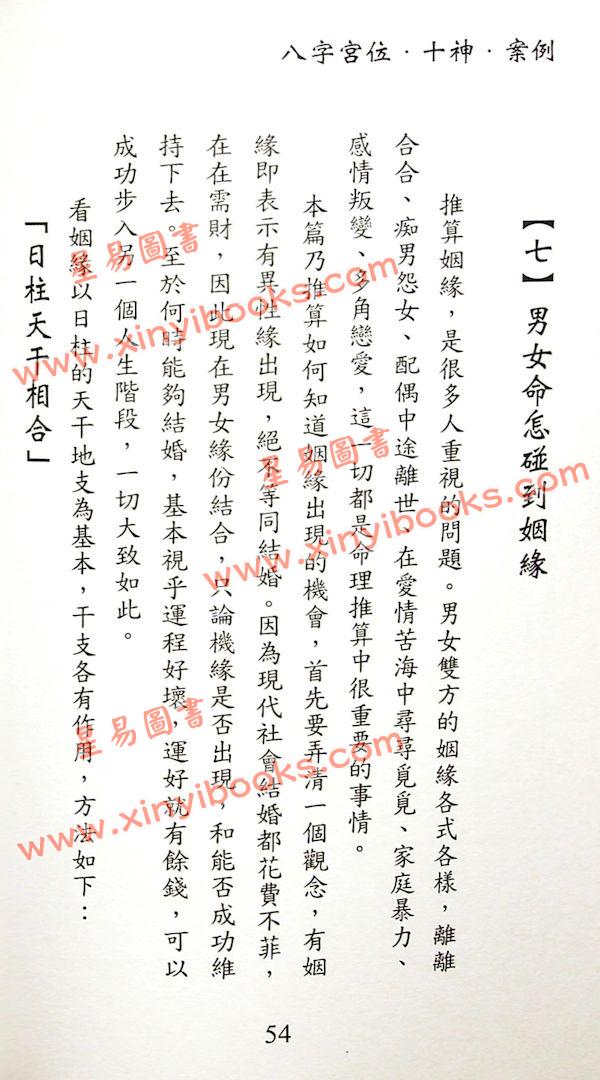 八字宮位．十神．案例
【七】男女命怎碰到姻緣
推算姻緣，是很多人重視的問題。男女雙方的姻緣各式各樣，離離
合合、痴男怨女、配偶中途離世、在愛情苦海中尋尋覓覓、家庭暴力、
感情叛變、多角戀愛，這一切都是命理推算中很重要的事情。
本篇乃推算如何知道姻緣出現的機會，首先要弄清一個觀念，有姻
緣即表示有異性緣出現，絕不等同結婚。因為現代社會結婚都花費不菲，
在在需財，因此現在男女緣份結合，只論機緣是否出現，和能否成功維
持下去。至於何時能夠結婚，基本視乎運程好壞，運好就有餘錢，可以
成功步入另一個人生階段，一切大致如此。
看姻緣以日柱的天干地支為基本，干支各有作用，方法如下：
「日柱天干相合」
54
星易圖書
www.xinyibooks.com
星易圖書
www.xinyibooks.com
星易圖書
www.xinyibooks.com